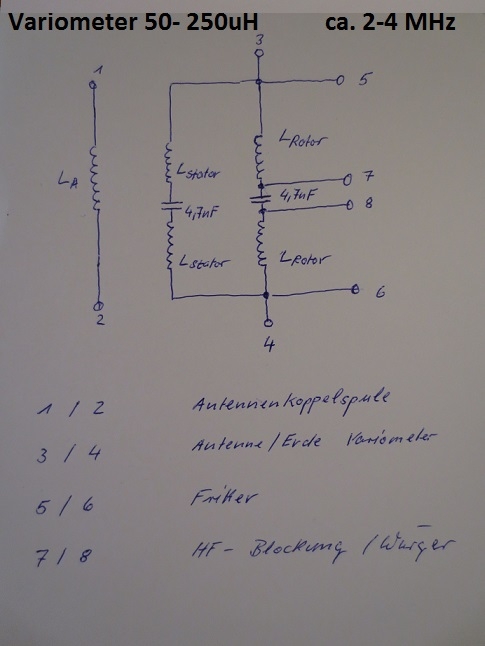 Variometer 50- 250uH ca. 2-4 MHz
3
1
5
LRotor
LA
LStator
7
4,7nF
4,7nF
8
LStator
LRotor
6
2
4
1 / 2 Antennenkoppelspule
3 / 4 Antenne / Erde Variometer
5 / 6 Fritter
7 / 8 HF - Blockung / Würger